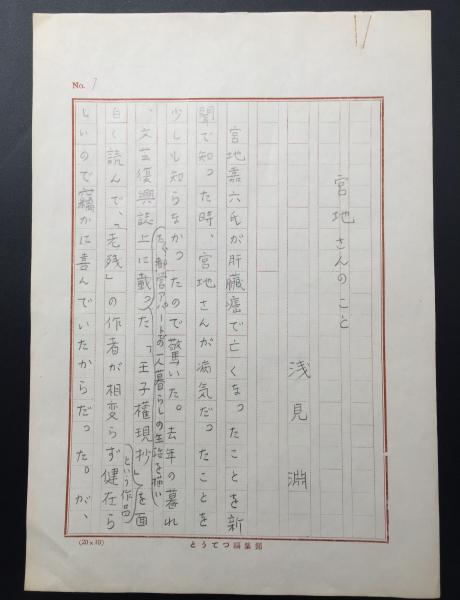 No. 1
宮地さんのこと
浅見淵
宮地嘉六氏が肝臓癌で亡くなったことを新
聞で知った時、宮地さんが病気だったことを
少しも知らなかったので驚いた。去年の暮れ
たゞ都営アパートの一人暮らしの生活を描い
、文芸復興誌上に載った「王子権現抄」を面
という作品
白く読んで、「老残」の作者が相変らず健在ら
しいので窃かに喜んでいたからだった。が、
(20×10)
とうてつ編集部